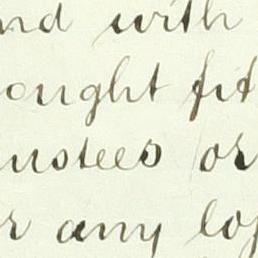 nd with
ought fit
ustees or
r any